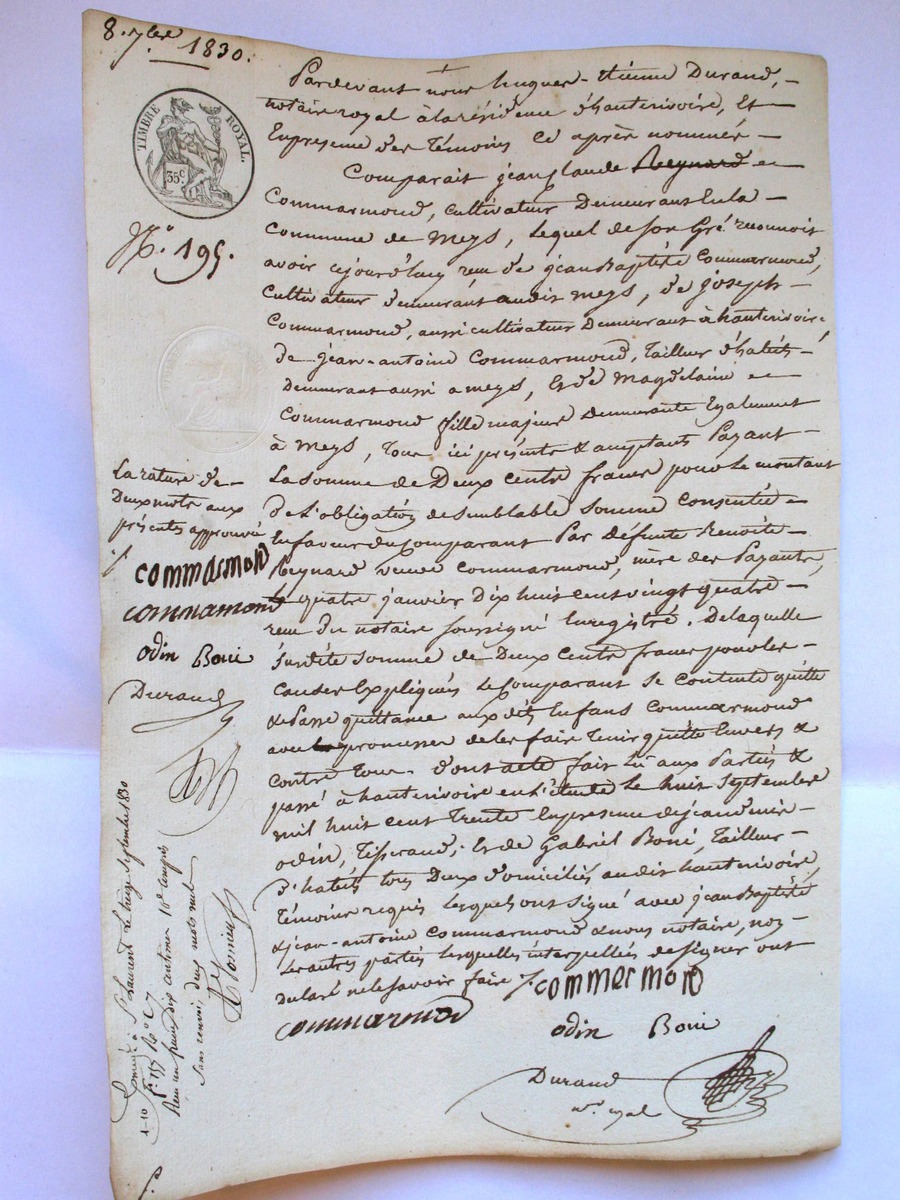 8. 7bre 1830.
TIMBRE ROYAL.
35c
No. 195.
Pardevant nous hugues-Etienne Durand,
notaire royal à la résidence d'hauterivoire, Et
En presence des Témoins Ci après nommés
Comparait jean Claude Reynard
Commarmond, Cultivateur Demeurant En la
Commune de Meys, Lequel de son Gré reconnoit
avoir cejourd'huy reçu de jean Baptiste Commarmond,
Cultivateur demeurant audit meys, de joseph
Commarmond, aussi cultivateur Demeurant à hauterivoire
de jean-antoine Commarmond, Tailleur d'habits
Demeurant aussi a meys, Et de Magdelaine
Commarmond fille majeure Demeurante Egalement
à Meys, Tous ici présents & acceptants Payant
La somme de Deux Cents francs pour le montant
de L'obligation de semblable somme Consentie
En faveur du Comparant Par défunte Benoite
Reynard veuve Commarmond, mère des Payants,
Le quatre janvier Dix huit cent vingt quatre
reçu du notaire soussigné Enregistré. De laquelle
susdite somme de Deux Cents francs pour les
Causes Expliquées Le Comparant se Contente quitte
& Passe quittance aux dits Enfans Commarmond
avec promesses de les faire Tenir quitte Envers &
Contre Tous. D'ont acte fait Lu aux Parties &
passé à hauterivoire en L'étude Le huit Septembre
mil huit cent Trente En presence de jean
odin, Tisserand, Et de Gabriel Boni, Tailleur
d'habits Tous Deux domiciliés audit hauterivoire,
Témoins requis Lesquels ont signé avec jean Baptiste
& jean-antoine Commarmond & nous notaire, non
Les autres parties Lesquelles interpellées de signer ont
declaré ne le savoir faire
Commarmond
Commarmond
odin Boni
Durand
La rature de
Deux mots aux
présentes approuvée
Commarmond
Commarmond
odin Boni
Durand
à St Laurent Le treize Septembre 1830
Reçu un franc dix centimes
sans renvoi, deux mots nuls